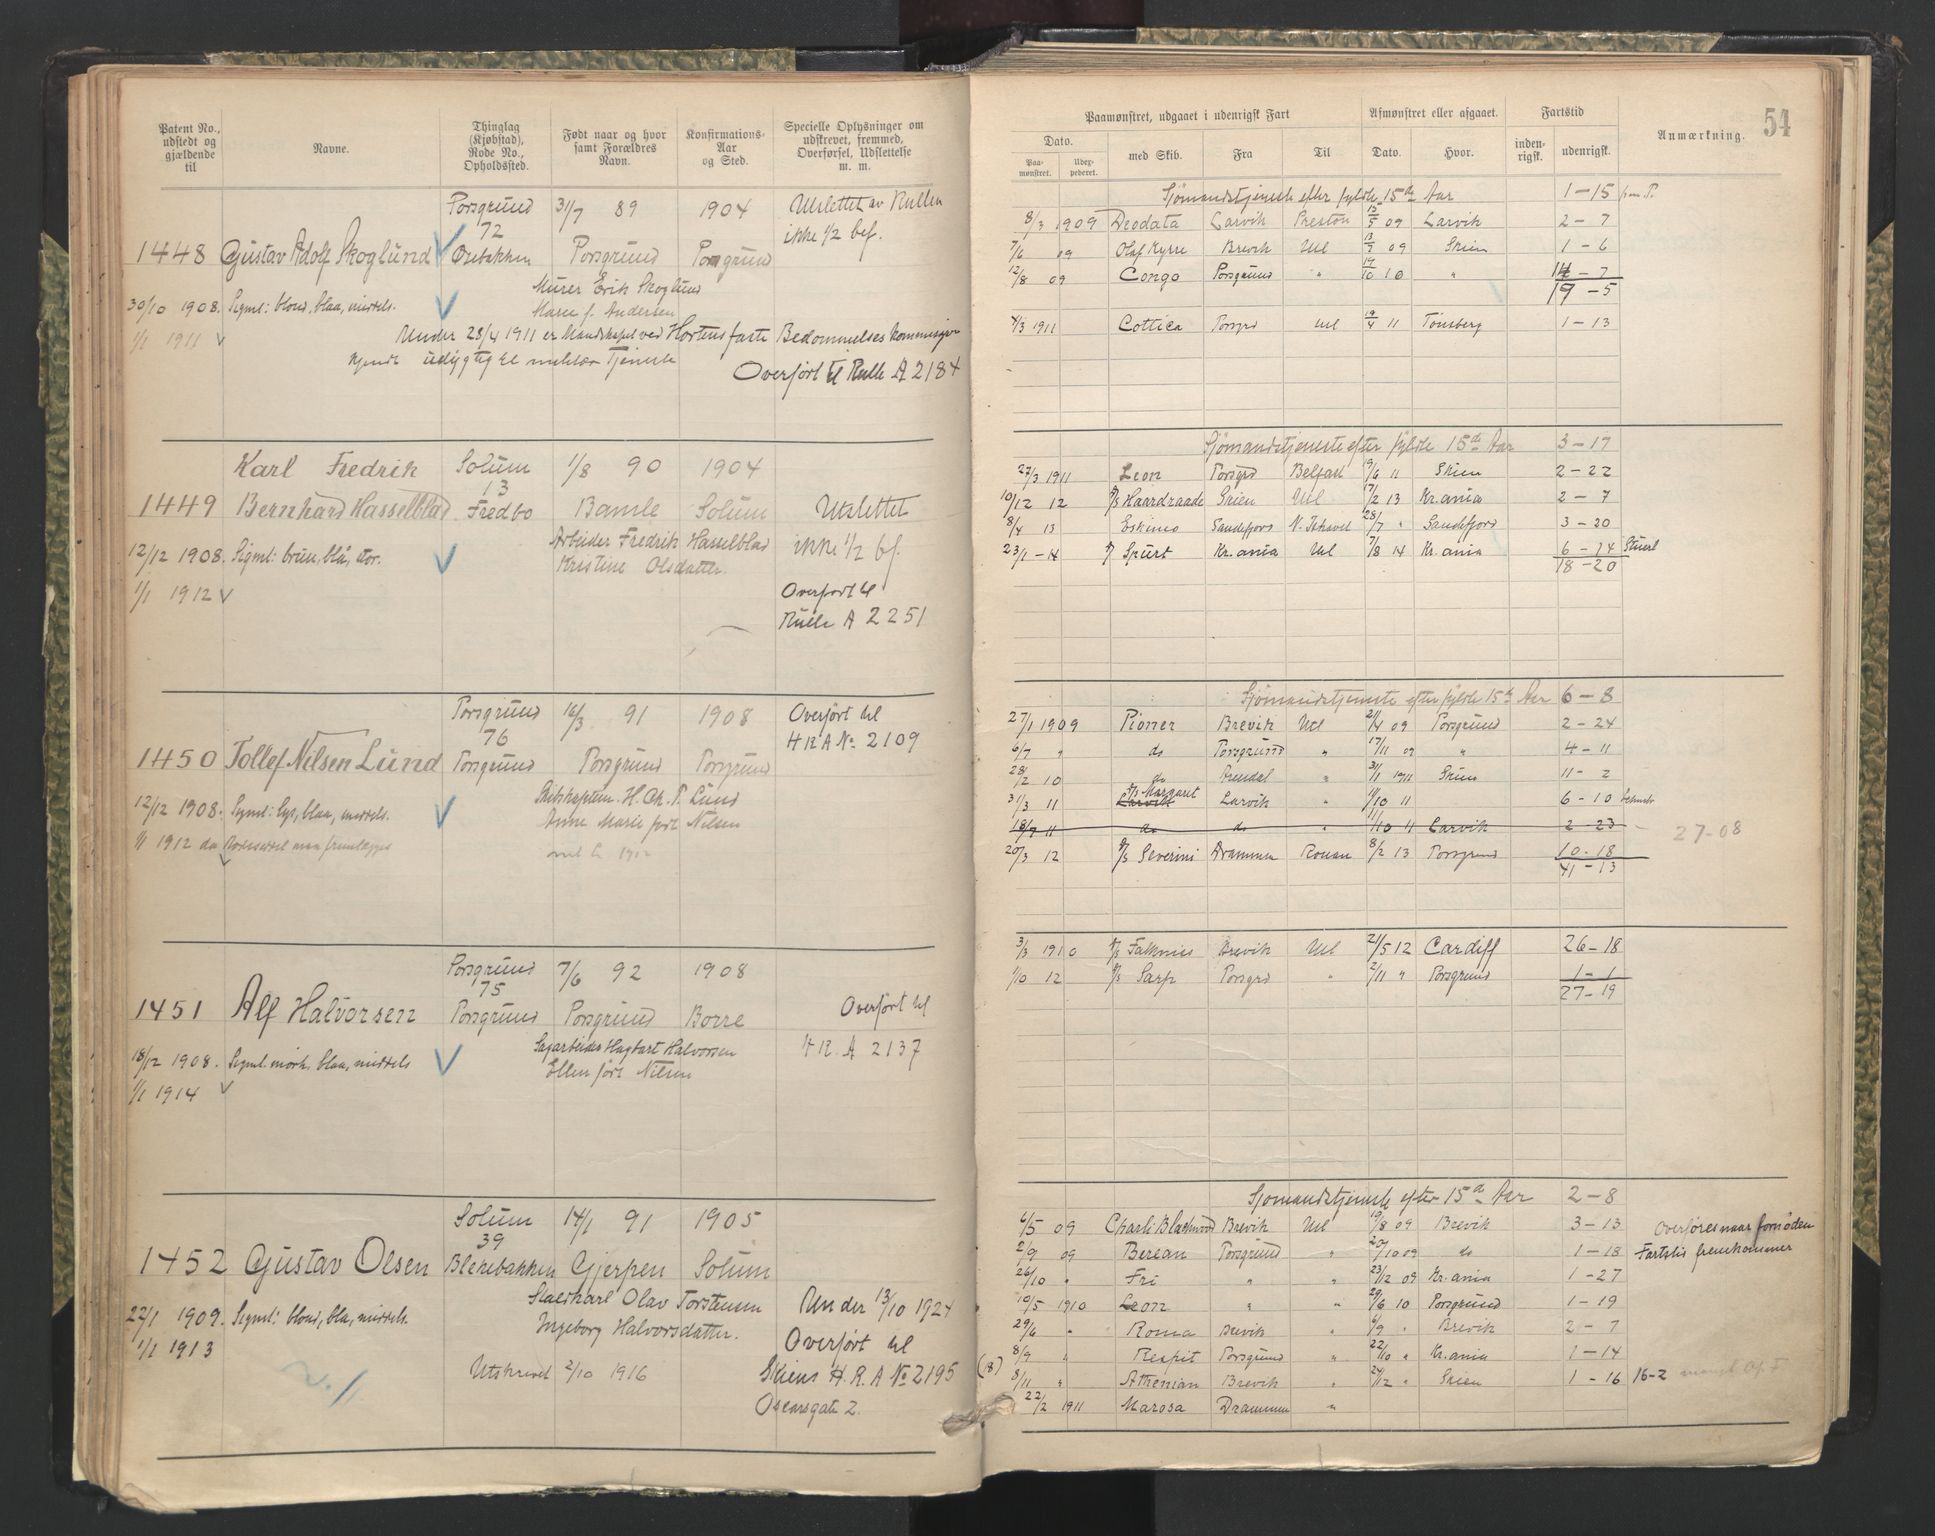 54
Patent No., udstedt og gjældende til
Navne.
Thinglag (Kjøbstad), Rode No., Opholdssted.
Født naar og hvor samt Forældres Navn.
Konfirmations-Aar og Sted.
Specielle Oplysninger om udskrevet, fremmed, Overførsel, Udslettelse m. m.
Paamønstret, udgaaet i udenrigsk Fart
Afmønstret eller afgaaet.
Fartstid
Anmærkning.
Dato.
Paa-mønstret.
Udex-pederet.
med Skib.
Fra
Til
Dato.
Hvor.
inden-rigsk.
udenrigsk.
Porsgrund 31/7 89 1904 Utslettet av Rullen
72 ikke 1/2 bef.
1448 Gustav Adolf Skoglund Porsgrund Porsgrund
Murer Erik Skoglund
30/10 1908. Signal: blond, blaa, middels. Marie f. Andersen
1/1 1911 Under 28/4 1911 er Mandskapet ved Hortens faste Bedømmelseskommisjon
kjendt udygtig til militær Tjeneste
Overført til Rulle A 2184
Sjømandstjeneste efter fyldte 15de Aar 1-15
8/3 1909 Deodata Larvik Preston 15/5 09 Larvik 2-7
7/6 09 Olaf Kyrre Brevik Utl 13/7 09 Skien 1-6
12/8 09 Congo Porsgrund " 19/10 10 " 14-7
19-5
4/3 1911 Cottica Porsgrd Utl 19/4 11 Tønsberg 1-13
Karl Fredrik Solum 1/8 90 1904
13
1449 Bernhard Hasselblad Fredbo Bamle Solum Utslettet
Arbeider Fredrik Hasselblad ikke 1/2 bf.
12/12 1908. Signal: brun, blå, stor. Kristine Olsdatter.
1/1 1912 Overført til
Rulle A 2251
Sjømandstjeneste efter fyldte 15de Aar 3-17
27/3 1911 Leon Porsgrd Belfast 19/6 11 Skien 2-22
10/12 12 Haardraade Skien Utl 17/2 13 Kr.ania 2-7
8/4 13 Eskimo Sandefjord N. Ishavet 28/7 " Sandefjord 3-20
23/1-14 Spurt Kr.ania Utl 7/8 14 Kr.ania 6-14
18-20
Porsgrund 16/3 91 1908 Overført til
76 HRA No 2109
1450 Tollef Nilsen Lund Porsgrund Porsgrund Porsgrund
Skibskaptein H. Ch. P. Lund
12/12 1908. Signal: lys, blaa, middels. Anne Marie født Nilsen
1/1 1912 da
Sjømandstjeneste efter fyldte 15de Aar 6-8
27/1 1909 Pioner Brevik Utl 21/4 09 Porsgrund 2-24
6/7 " do Porsgrund " 17/11 09 " 4-11
28/2 10 do Arendal " 31/1 1911 Skien 11-2
31/3 11 Larvik Margaret Larvik " 11/10 11 6-10
18/7 11 do do " 11/10 11 Larvik 2-23
27-08
20/3 12 Severini Drammen Rouen 8/2 13 Porsgrund 10-18
41-13
Porsgrund 7/6 92 1908
75
1451 Alf Halvorsen Porsgrund Porsgrund Borre Overført til
Sagarbeider Hagbart Halvorsen
18/12 1908. Signal: mørk, blaa, middels Ellen født Nilsen HR. A 2137
1/1 1914
3/3 1910 Falknes Brevik Utl 21/5 12 Cardiff 26-18
1/10 12 Sarp Porsgrd " 2/11 " Porsgrund 1-1
27-19
Solum 14/1 91 1905
39
1452 Gustav Olsen Blekebakken Gjerpen Solum
Staldkarl Olav Torstensen
22/1 1909. Signal: blond, blå, middels. Ingeborg Halvorsdatter. Under 13/10 1924
1/1 1913 Overført til
Utskrevet 2/10 1916 Skiens H.R.A No 2195
Oscarsgate 2.
Sjømandstjeneste efter 15de Aar 2-8
6/5 09 Charli Blackwood Brevik Utl 19/8 09 Brevik 3-13 Overføres naar fornøden
2/9 09 Berean Porsgrund " 20/10 09 do 1-18 Fartstid fremkommer
26/10 " Fri " " 23/12 09 Kr.ania 1-27
10/5 1910 Leon " " 29/6 10 Porsgrund 1-19
29/6 " Roma Brevik " 6/9 " Brevik 2-7
8/9 " Respit Porsgrund " 22/10 " Kr.ania 1-14
(18) 8/11 " Athenian Brevik " 24/12 " Skien 1-16 16-2
22/2 1911 Marosa Drammen "